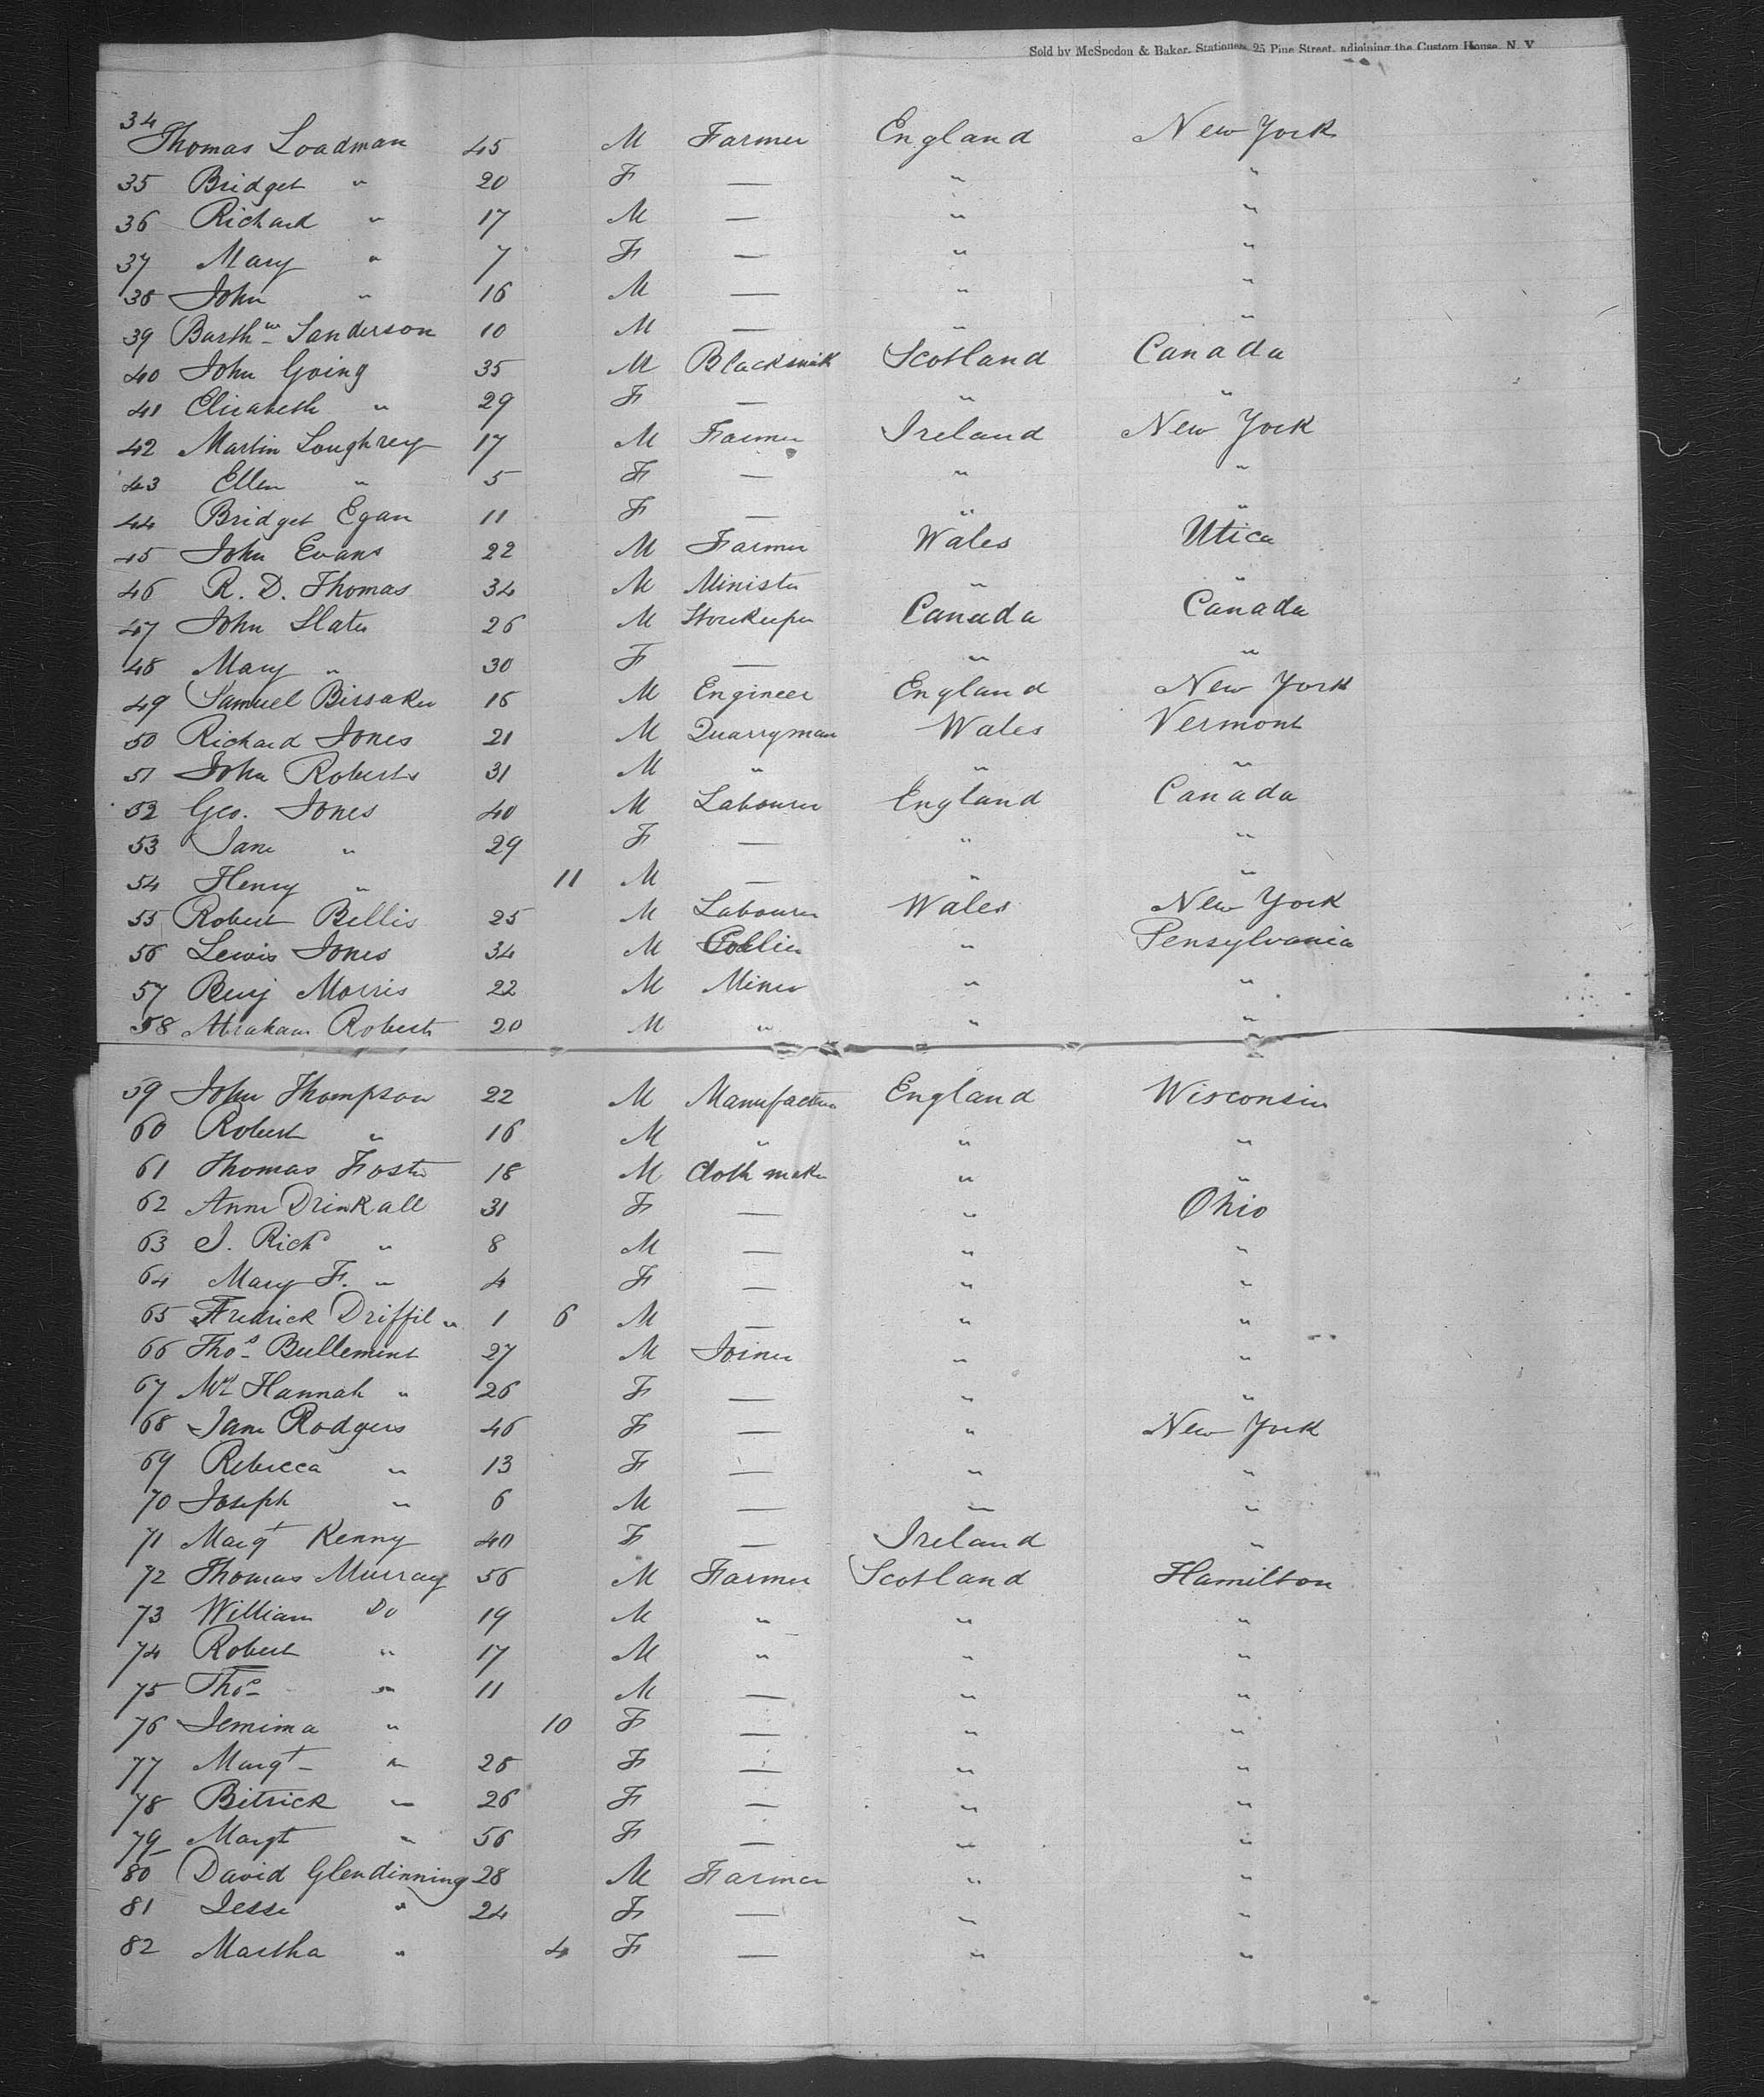 Sold by McSpedon & Baker, Stationers, 25 Pine Street, adjoining the Custom House, N. Y.
34 Thomas Loadman 45 M Farmer England New York
35 Bridget " 20 F — " "
36 Richard " 17 M — " "
37 Mary " 7 F — " "
38 John " 16 M — " "
39 Barthw Sanderson 10 M — " "
40 John Going 35 M Blacksmith Scotland Canada
41 Elizabeth " 29 F — " "
42 Martin Loughrey 17 M Farmer Ireland New York
43 Ellen " 5 F — " "
44 Bridget Egan 11 F — " "
45 John Evans 22 M Farmer Wales Utica
46 R. D. Thomas 34 M Minister " "
47 John Slater 26 M Storekeeper Canada Canada
48 Mary " 30 F — " "
49 Samuel Bissaker 16 M Engineer England New York
50 Richard Jones 21 M Quarryman Wales Vermont
51 John Roberts 31 M " " "
52 Geo. Jones 40 M Labourer England Canada
53 Jane " 29 F — " "
54 Henry " 11 M — " "
55 Robert Bellis 25 M Labourer Wales New York
56 Lewis Jones 34 M Collier " Pensylvania
57 Benj Morris 22 M Miner " "
58 Abraham Roberts 20 M " " "
59 John Thompson 22 M Manufacturer England Wisconsin
60 Robert " 16 M " " "
61 Thomas Foster 18 M Cloth maker " "
62 Anne Drinkall 31 F — " Ohio
63 J. Richd " 8 M — " "
64 Mary F. " 4 F — " "
65 Fredrick Driffil " 1 6 M — " "
66 Thos Bullement 27 M Joiner " "
67 Mrs Hannah " 26 F — " "
68 Jane Rodgers 46 F — " New York
69 Rebecca " 13 F — " "
70 Joseph " 6 M — " "
71 Margt Kenny 40 F — Ireland "
72 Thomas Murray 56 M Farmer Scotland Hamilton
73 William Do 19 M " " "
74 Robert " 17 M " " "
75 Thos " 11 M — " "
76 Jemima " 10 F — " "
77 Margt " 28 F — " "
78 Bitrick " 26 F — " "
79 Margt " 56 F — " "
80 David Glendinning 28 M Farmer " "
81 Jesse " 24 F — " "
82 Martha " 4 F — " "